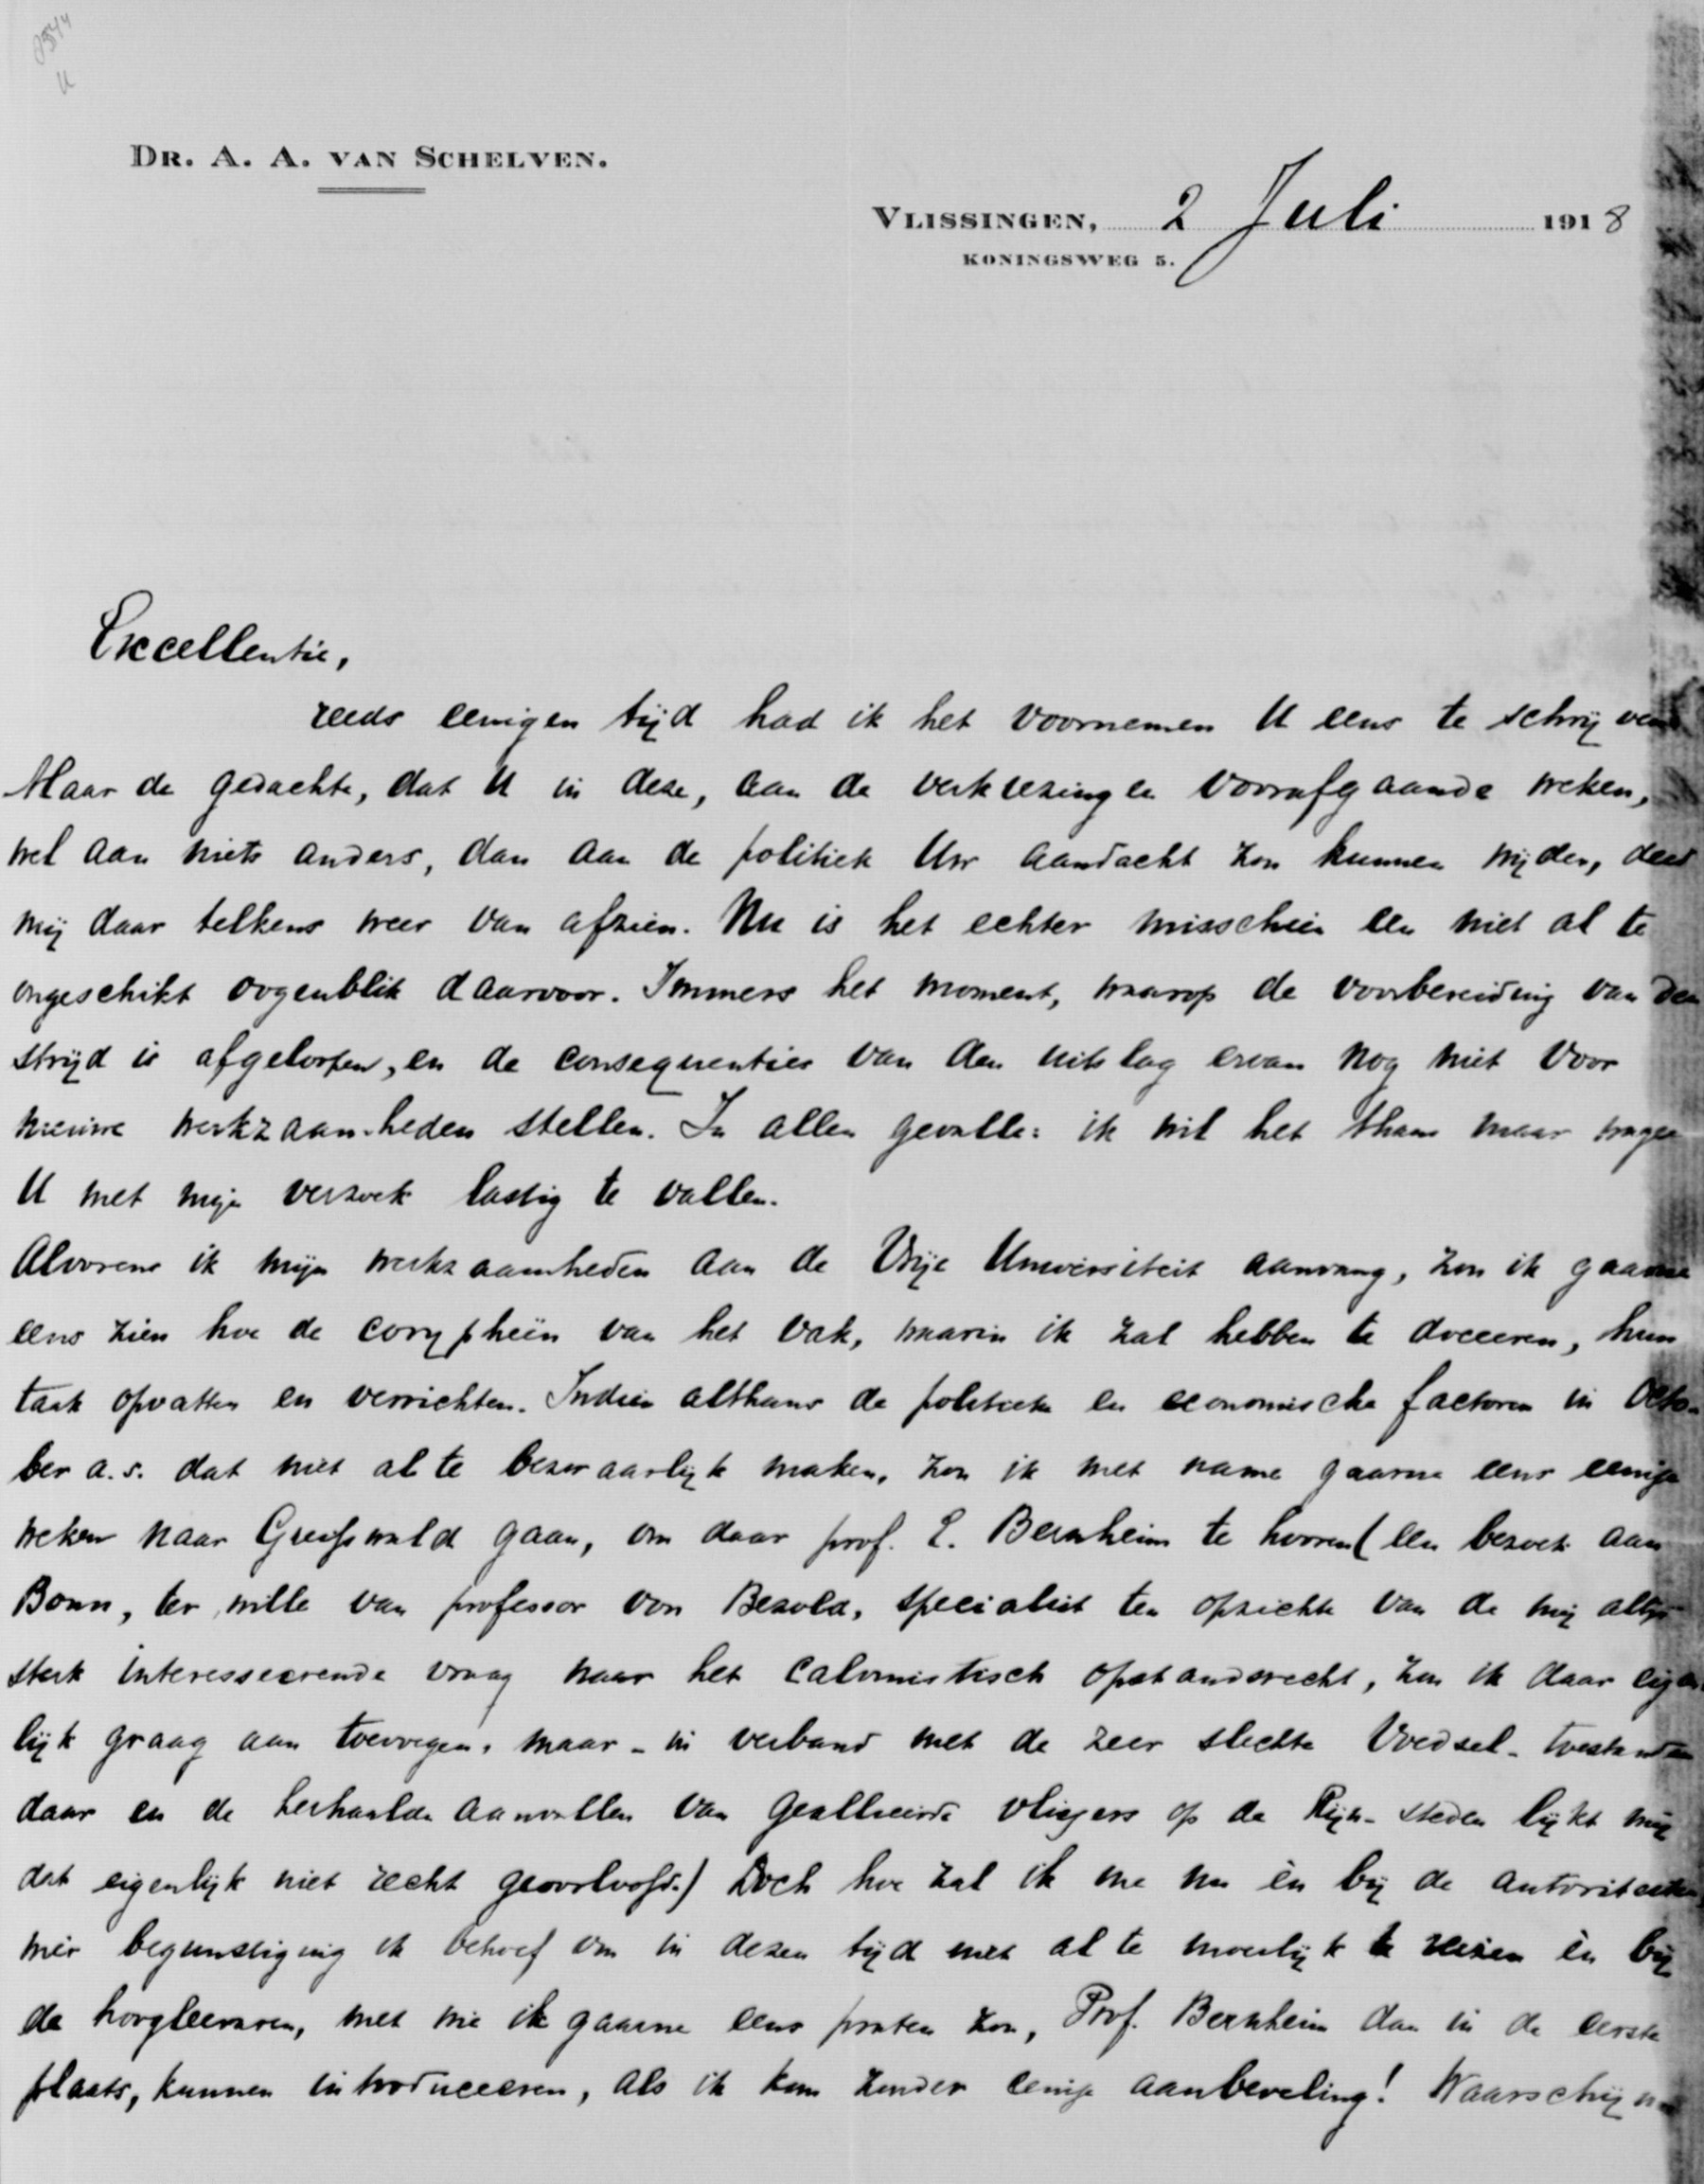 DR. A. A. VAN SCHELVEN.
VLISSINGEN, 2 Juli 1918
KONINGSWEG 5.
Excellentie,
reeds eenigen tijd had ik het voornemen U eens te schrijven.
Maar de gedachte, dat U in deze, aan de verkiezingen voorafgaande weken,
wel aan niets anders, dan aan de politiek Uw aandacht zou kunnen wijden, deed
mij daar telkens weer van afzien. Nu is het echter misschien een niet al te
ongeschikt oogenblik daarvoor. Immers het moment, waarop de voorbereiding van den
strijd is afgeloopen, en de consequenties van den uitslag ervan nog niet voor
nieuwe werkzaamheden stellen. In allen gevalle: ik wil het thans maar wagen
U met mijn verzoek lastig te vallen.
Alvorens ik mijn werkzaamheden aan de Vrije Universiteit aanvang, zou ik gaarne
eens zien hoe de corypheeën van het vak, waarin ik zal hebben te doceeren, hun
taak opvatten en verrichten. Indien althans de politieke en economische factoren in Octo-
ber a.s. dat niet al te bezwaarlijk maken, zou ik met name gaarne eens eenige
weken naar Greifswald gaan, om daar prof. E. Bernheim te hooren (een bezoek aan
Bonn, ter wille van professor von Bezold, specialist ten opzichte van de mij altijd
sterk interesseerende vraag naar het calvinistisch opstandsrecht, zou ik daar eigen-
lijk graag aan toevoegen, maar - in verband met de zeer slechte voedsel-toestanden
daar en de herhaalde aanvallen van geallieerde vliegers op de Rijn-steden lijkt mij
dat eigenlijk niet recht geoorloofd.) Doch hoe zal ik me nu èn bij de autoriteiten
wier begunstiging ik behoef om in dezen tijd niet al te moeilijk te reizen èn bij
de hoogleeraren, met wie ik gaarne eens praten zou, Prof. Bernheim dan in de eerste
plaats, kunnen introduceeren, als ik kom zonder eenige aanbeveling! Waarschijn-